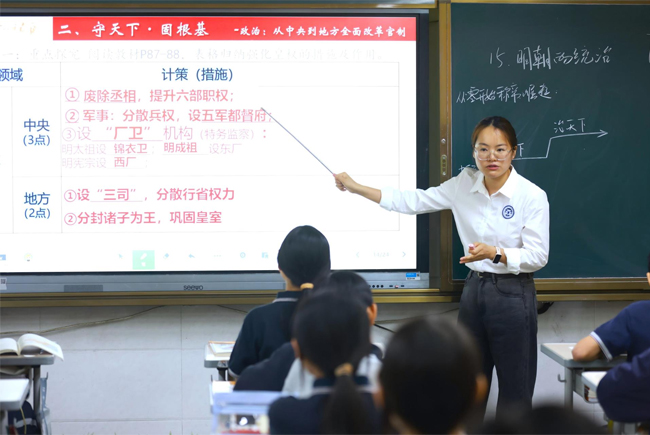 二、守天下·固根基
-政治：从中央到地方全面改革官制
领域
计策（措施）
中央
(3点)
① 废除丞相，提升六部职权；
② 军事：分散兵权，设五军都督府；
③设 “厂卫” 机构（特务监察）：
明太祖设 锦衣卫；明成祖 设东厂
明宪宗设 西厂
地方
(2点)
①设“三司”，分散行省权力
②分封诸子为王，巩固皇室
seewo
15.明朝的统治
治天下
下